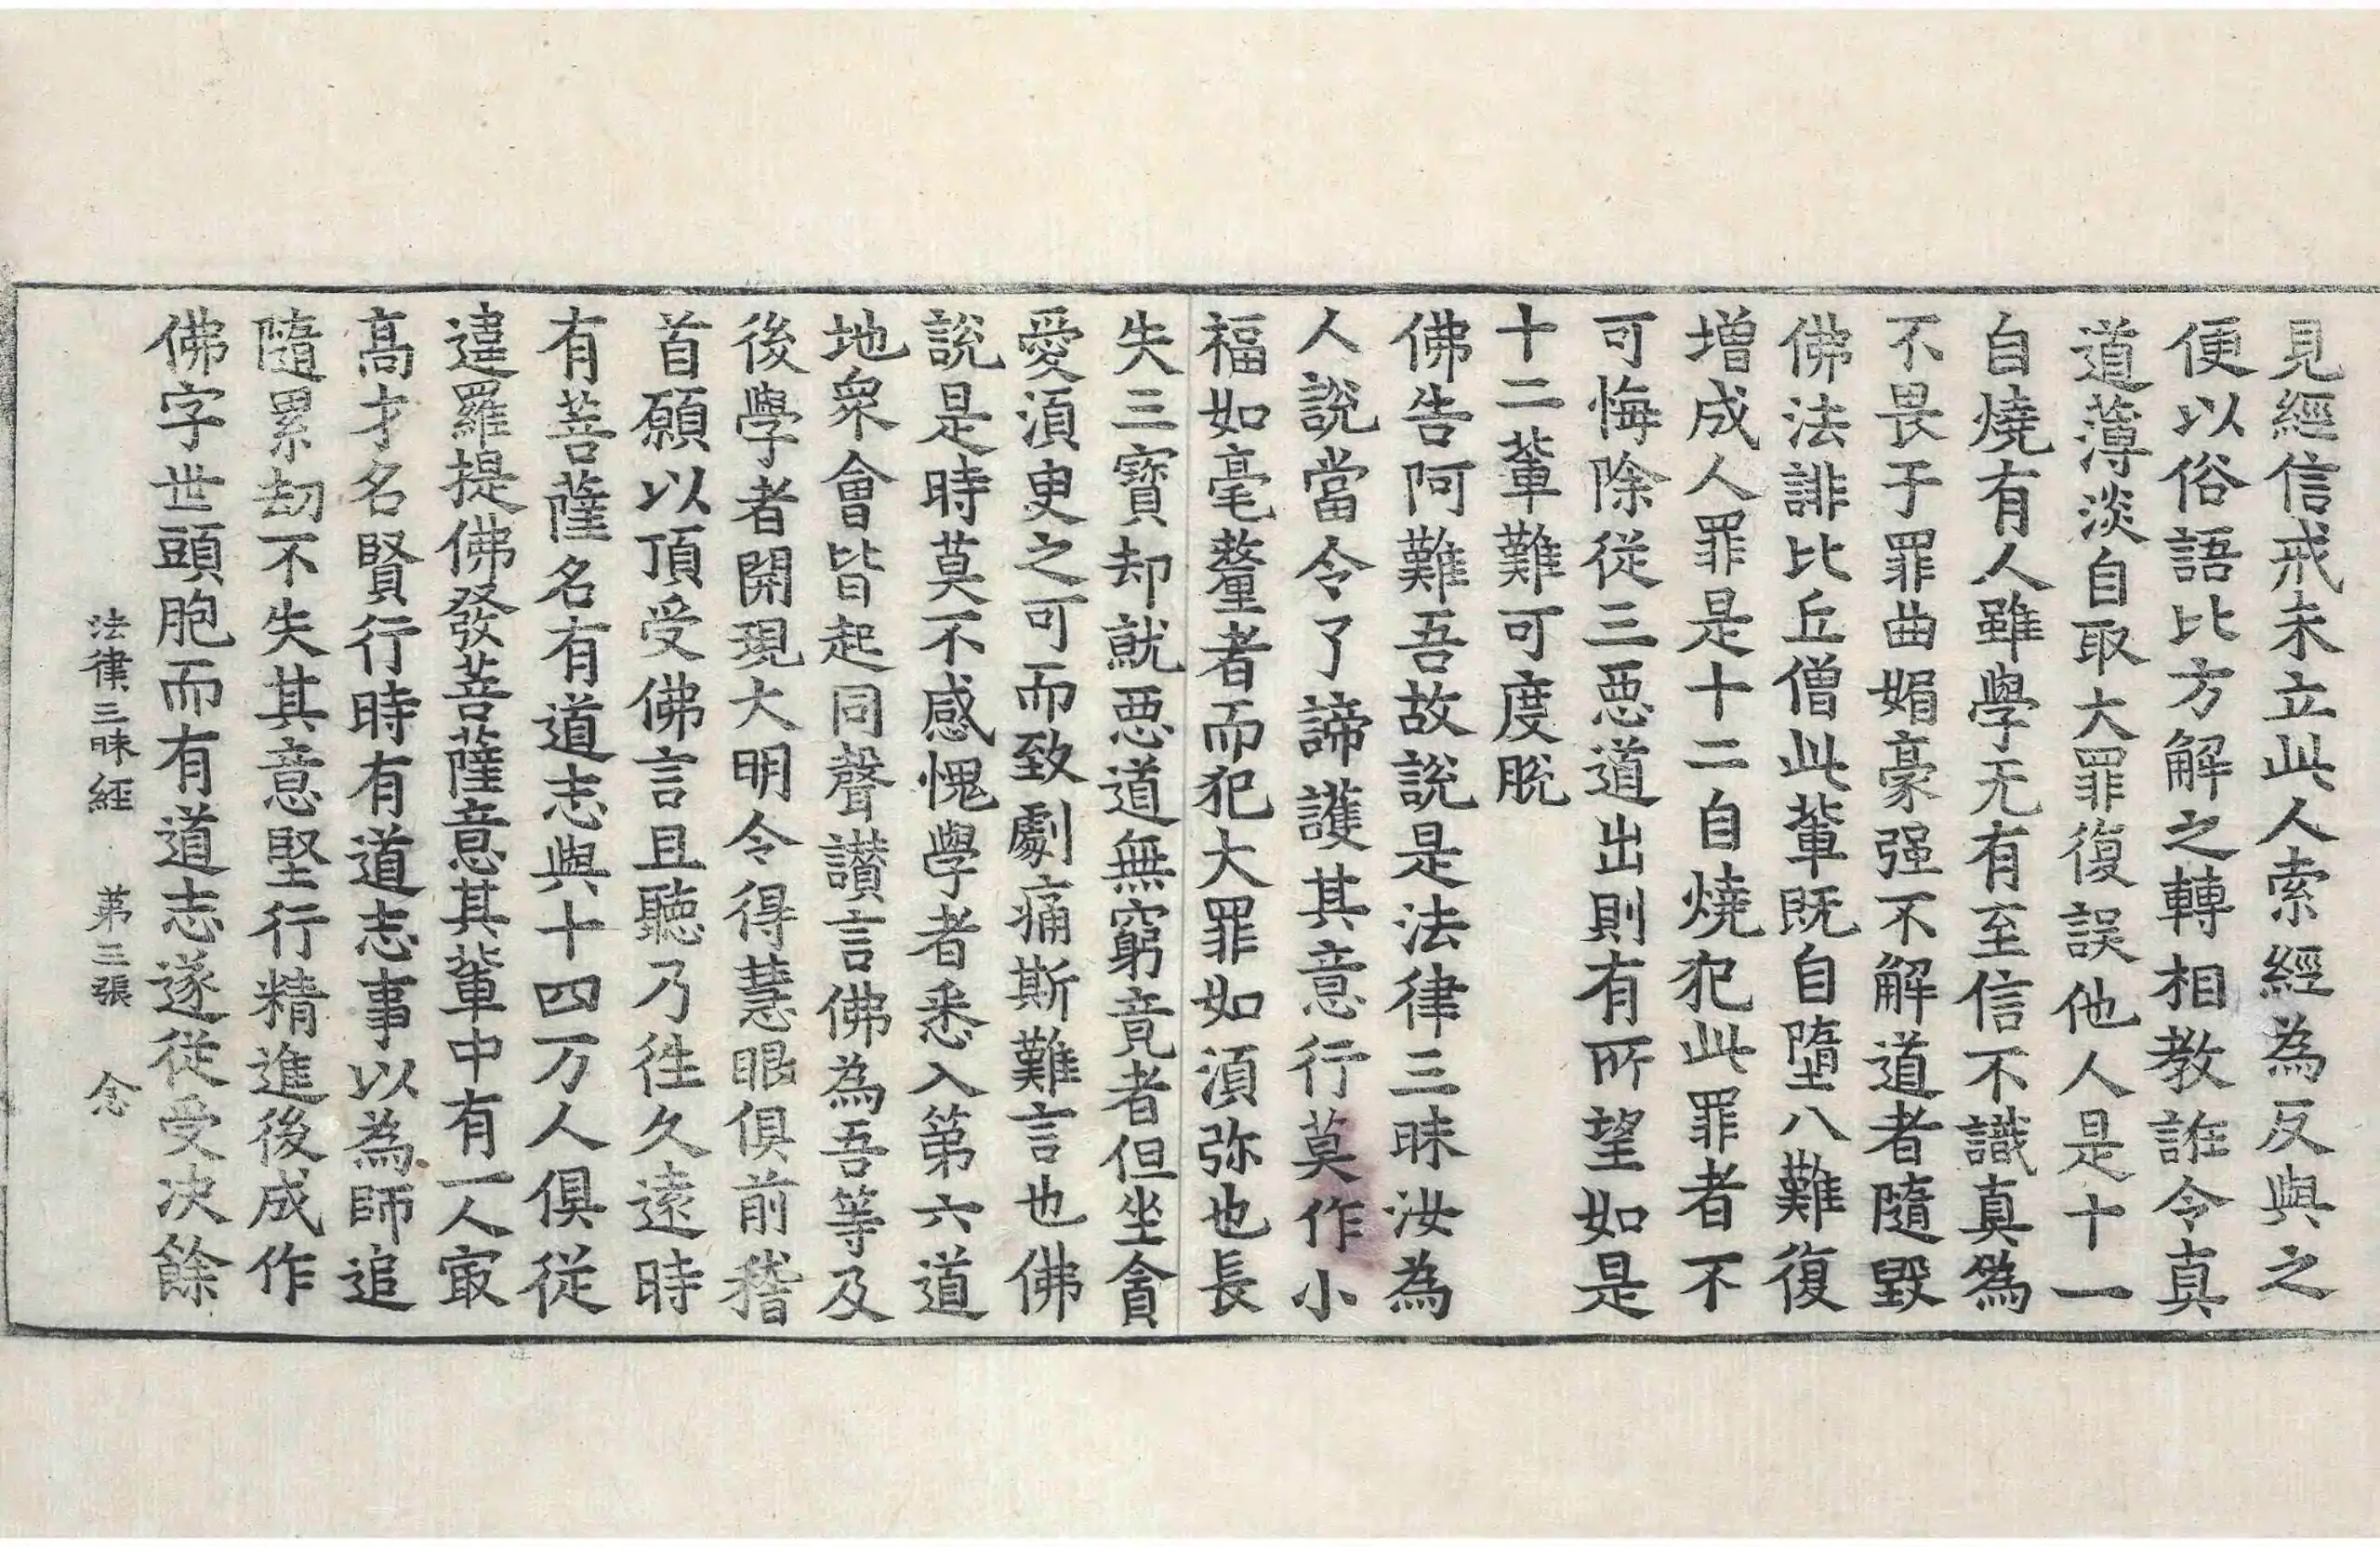 見經信戒未立此人索經為反與之
便以俗語比方解之轉相教誑令真
道薄淡自取大罪復誤他人是十一
自燒有人雖學无有至信不識真為
不畏于罪曲媚豪强不解道者隨毀
佛法誹比丘僧此輩既自墮八難復
増成人罪是十二自燒犯此罪者不
可悔除從三惡道出則有所望如是
十二輩難可度脫
佛告阿難吾故說是法律三昧汝為
人說當令了諦護其意行莫作小
福如毫釐者而犯大罪如湏弥也長
失三寶却就惡道無窮竟者但坐貪
愛湏臾之可而致劇痛斯難言也佛
說是時莫不感愧學者悉入第六道
地衆會皆起同聲讃言佛為吾等及
後學者開現大明令得慧眼俱前稽
首願以頂受佛言且聽乃往久遠時
有菩薩名有道志與十四万人俱從
違羅提佛發菩薩意其輩中有一人㝡
髙才名賢行時有道志事以為師追
隨累劫不失其意堅行精進後成作
佛字世頭胞而有道志遂從受决餘
法律三昧經　第三張　念